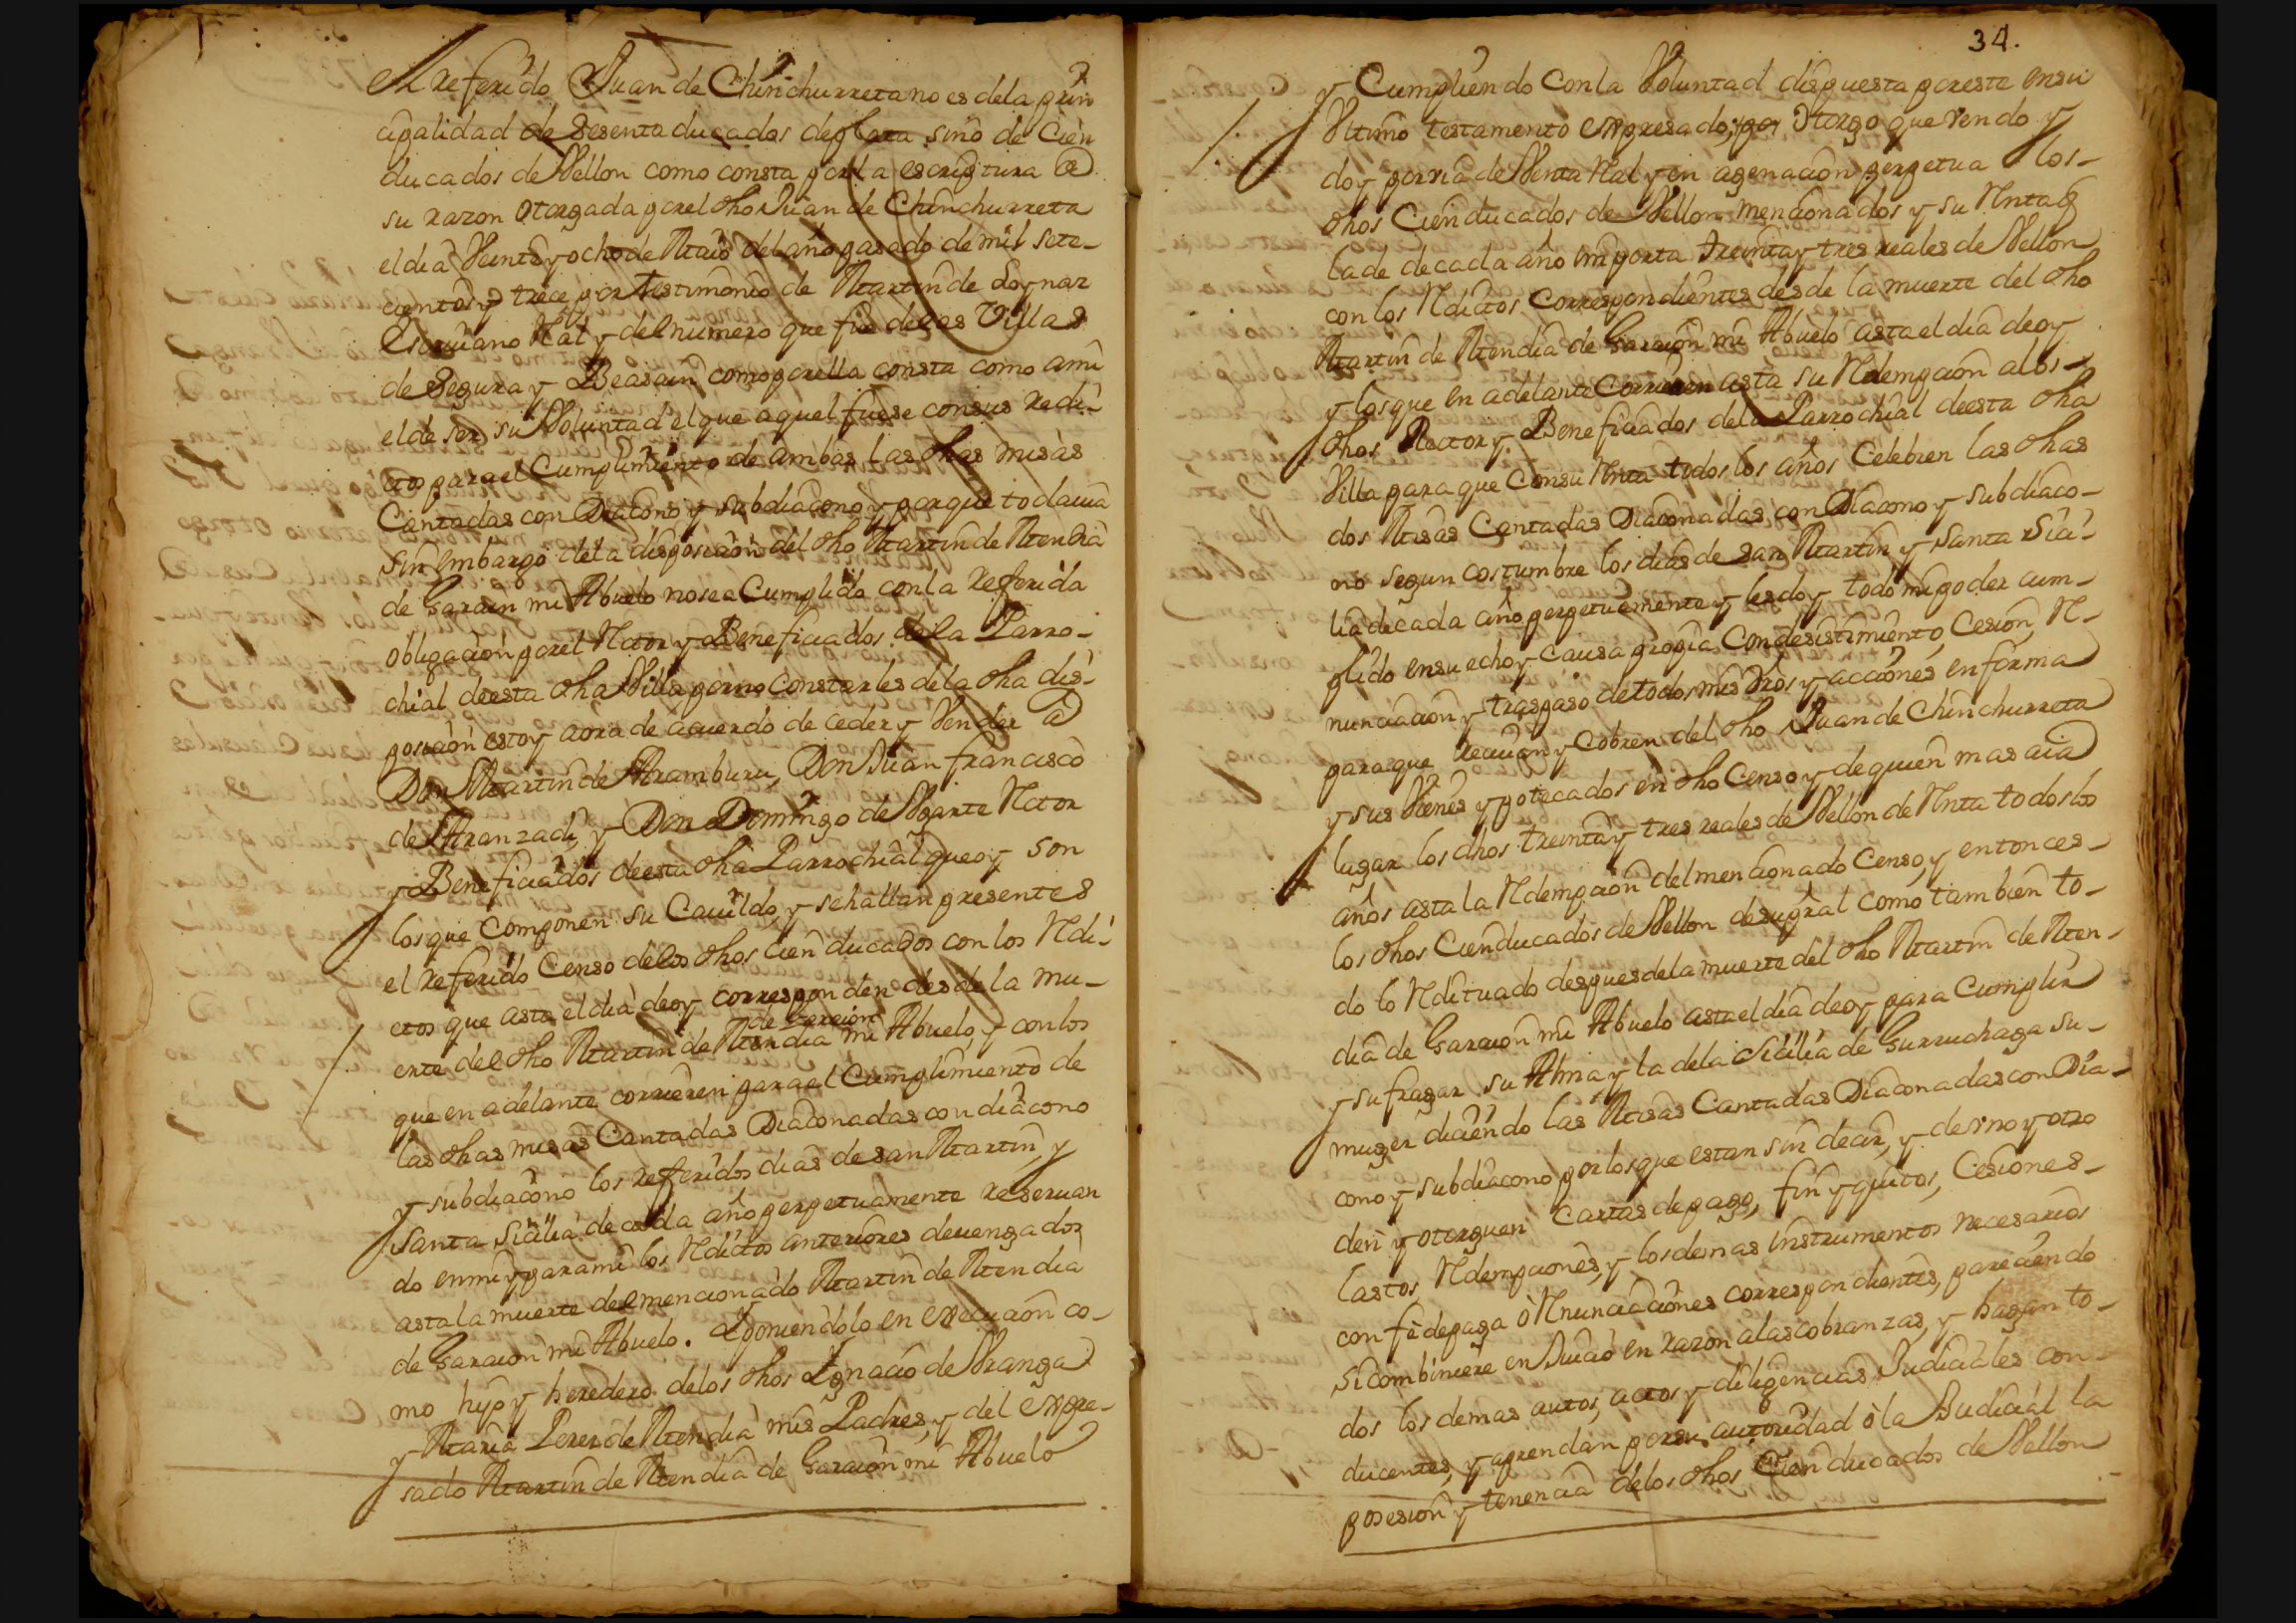 El referido Juan de Chinchurreta no es dela prin
cipalidad de Sesenta ducados de plata sino de Cien
ducados de Vellon como consta por la escriptura de
su razon Otorgada por el dho Juan de Chinchurreta
el dia Veinte y ocho de Maio del año pasado de mil sete-
cientos y trece por testimonio de Martin de Loynaz
Escriuano Ral y del numero que fue de las Villas
de Segura y Beasain como por ella consta como a mi
el de ser su Voluntad el que aquel fuese con sus redi-
ctos para el Cumplimiento de ambas las dhas misas
Cantadas con Diacono y subdiacono y porque todauia
sin embargo dela disposicion del dho Martin de Mendia
de Garacin mi Abuelo no se a Cumplido con la referida
obligacion por el Rector y Beneficiados de la Parro-
chial de esta dha Villa por no Constarles de la dha dis-
posicion estoy aora de acuerdo de ceder y Vender a
Don Martin de Aramburu, Don Juan francisco
de Aranzadi, y Don Domingo de Vgarte Rector
y Beneficiados de esta dha Parrochial que oy son
los que Componen su Cauildo, y se hallan presentes
el referido Censo de los dhos cien ducados con los Redi-
ctos que asta el dia de oy corresponden desde la mu-
de Garacion
erte del dho Martin de Mendia mi Abuelo, y con los
que en adelante corrieren para el Cumplimiento de
las dhas misas Cantadas Diaconadas con diacono
y subdiacono los referidos dias de san Martin, y
Santa Sicilia de cada año perpetuamente reseruan
do en mi y para mi los Redictos anteriores deuengados
asta la muerte del mencionado Martin de Mendia
de Garacion mi Abuelo. Y poniendolo en execucion co-
mo hijo y heredero delos dhos Ygnacio de Vranga
y Maria Perez de Mendia mis Padres, y del expre-
sado Martin de Mendia de Garacion mi Abuelo
34.
y Cumpliendo Con la Voluntad dispuesta por este en su
Vltimo testamento expresado, Otorgo que Vendo y
doy por via de Venta Ral y en agenacion perpetua los-
dhos Cien ducados de Vellon mencionados y su Renta q
la de de cada año importa treinta y tres reales de Vellon
con los Redictos Correspondientes desde la muerte del dho
Martin de Mendia de Garacion mi Abuelo asta el dia de oy
y los que en adelante Corrieren asta su Redempcion a los-
dhos Rector y Beneficiados dela Parrochial de esta dha
Villa para que Con su Renta todos los años Celebren las dhas
dos Misas Cantadas Diaconadas con Diacono y subdiaco-
no segun costumbre los dias de san Martin y Santa Sici-
lia de cada año perpetuamente y les doy todo mi poder cum-
plido en su echo y Causa propia Con desistimiento, Cesion, Re-
nunciacion y traspaso de todos mis dros y acciones en forma
para que reciuan y Cobren del dho Juan de Chinchurreta
y sus Vienes ypotecados en dho Censo y de quien mas aia
lugar los dhos treinta y tres reales de Vellon de Renta todos los
años asta la Redempcion del mencionado Censo, y entonces-
los dhos Cien ducados de Vellon de su pral como tambien to-
do lo Redituado despues de la muerte del dho Martin de Men-
dia de Garacion mi Abuelo asta el dia de oy para Cumplir
y sufragar su Alma y la dela Sicilia de Gurruchaga su-
muger diciendo las Misas Cantadas Diaconadas con Dia-
cono y subdiacono por los que estan sin decir, y de vno y otro
den y otorguen Cartas de pago, fin y quitos, Cesiones-
lastos Redempciones, y los demas instrumentos necesarios
con fe de paga o Renunciaciones correspondientes, pareciendo
si combiniere en Juicio en razon a las cobranzas, y hagan to-
dos los demas autos, actos y diligencias Judiciales con-
ducentes, y aprendan por su autoridad o la Judicial la
posesion y tenencia delos dhos Cien ducados de Vellon